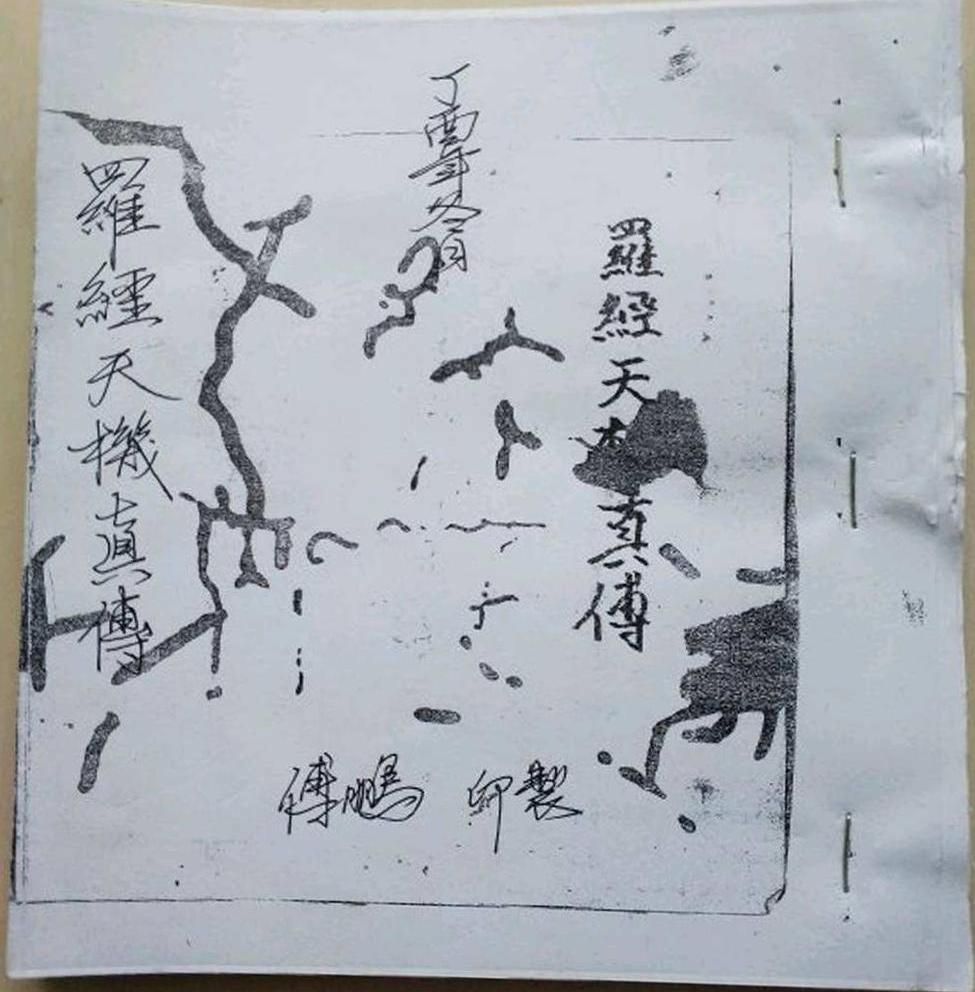 羅經天真傳
丁酉年冬月
羅經天機眞傳
傅鵬 印製